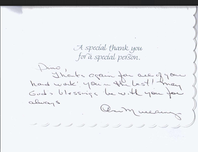 A special thank you
for a special person.
Dear,
Thank you for all of your
hard work you the last! May
God's blessings be with you for
always
Ann